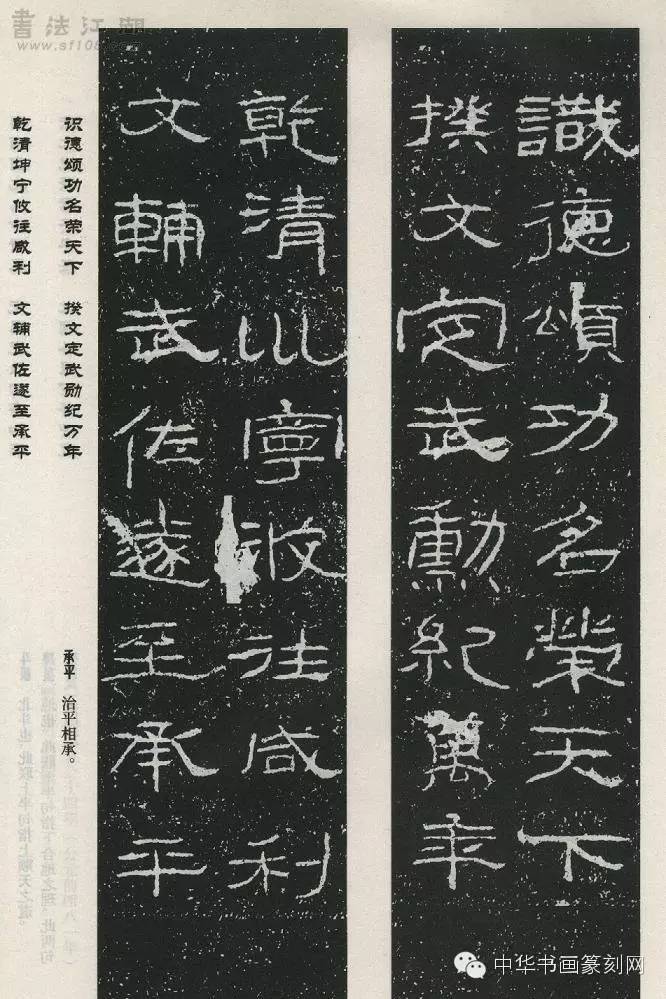 書法江湖
www.sf108.com
識德頌功名榮天下
撰文定武勳紀萬年
乾清巛寧攸往咸利
文輔武佐遂至承平
识德颂功名荣天下 撰文定武勋纪万年
乾清坤宁攸往咸利 文辅武佐遂至承平
承平 治平相承。
中华书画篆刻网